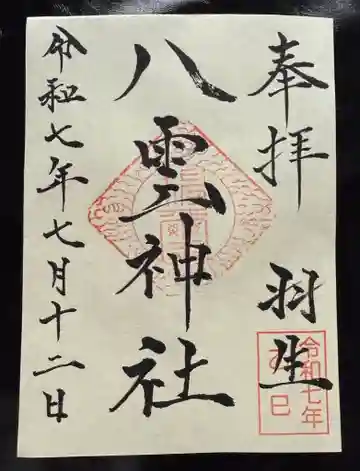 奉拝 羽生
八雲神社
令和七年七月十二日
令和七年
乙巳